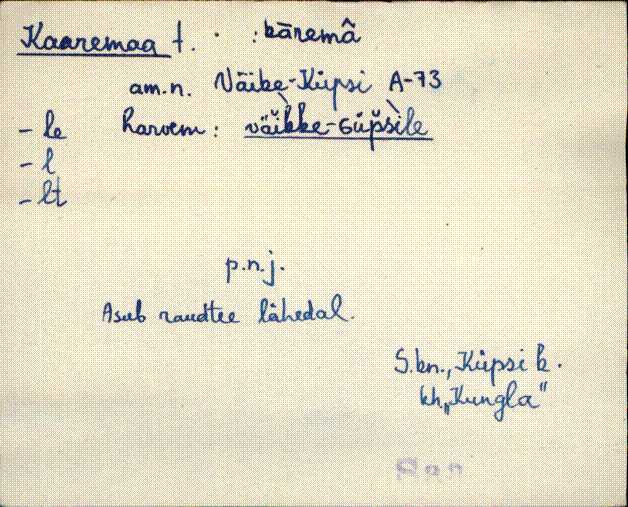 Kaaremaa t. : kāremâ
am.n. Väike-Küpsi A-73
- le harvem: väikke-Güpsile
- l
- lt
p.n.j.
Asub raudtee lähedal.
S.kn., Küpsi k.
kh. „Kungla"